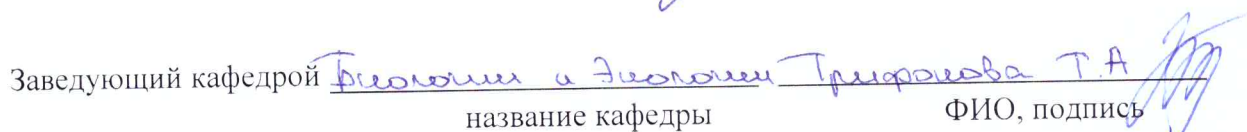 Заведующий кафедрой Биологии и Экологии Трифонова Т.А
название кафедры ФИО, подпись